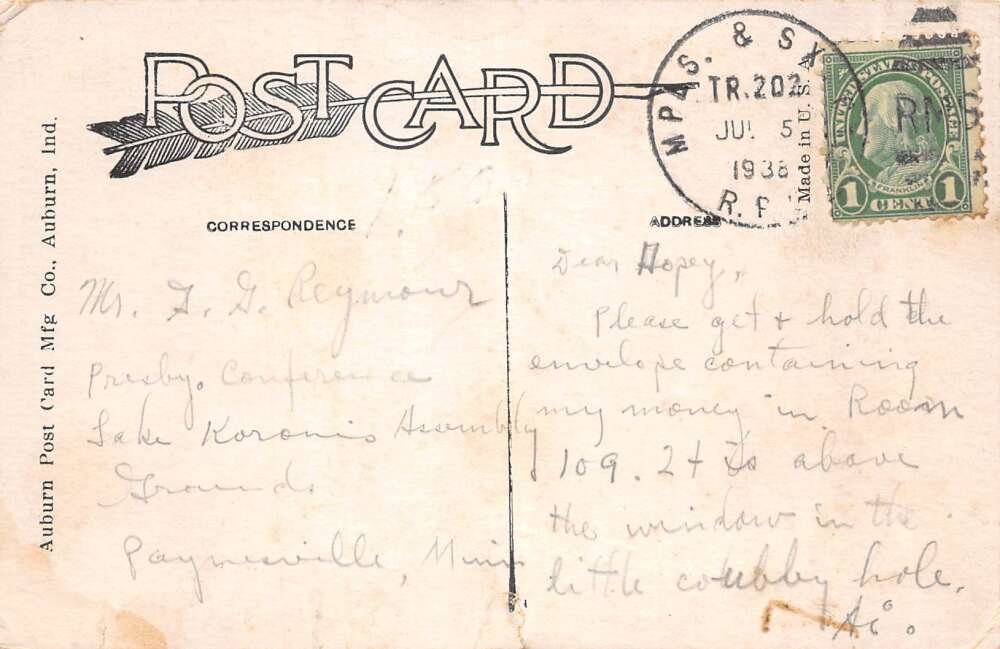 POST CARD
MPLS. & SX
TR. 202
JUL 5
1938
R.P.
RMS
UNITED STATES POSTAGE
FRANKLIN
1 CENT 1
Made in U. S. A
Auburn Post Card Mfg Co., Auburn, Ind.
CORRESPONDENCE
ADDRESS
Mr. F. G. Reymour
Presby. Conference
Lake Koronis Assembly
Grounds
Paynesville, Minn
Dear Hopey,
Please get + hold the
envelope containing
my money in Room
109. It is above
the window in the
little coubby hole.